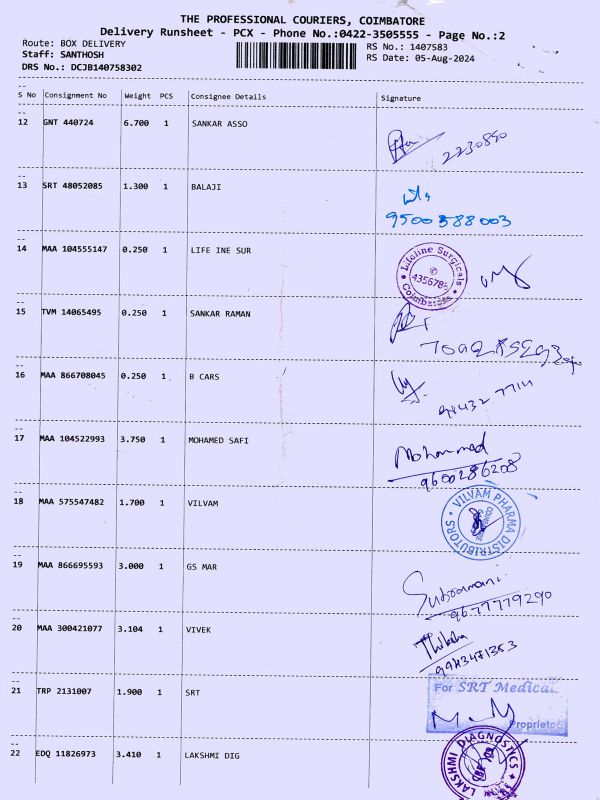 THE PROFESSIONAL COURIERS, COIMBATORE
Delivery Runsheet - PCX - Phone No.:0422-3505555 - Page No.:2
Route: BOX DELIVERY
RS No.: 1407583
Staff: SANTHOSH
RS Date: 05-Aug-2024
DRS No.: DCJB140758302
S No Consignment No Weight PCS Consignee Details Signature
12 GNT 440724 6.700 1 SANKAR ASSO
2230890
13 SRT 48052085 1.300 1 BALAJI
9500588003
14 MAA 104555147 0.250 1 LIFE INE SUR
Lifeline Surgicals
Coimbatore
15 TVM 14065495 0.250 1 SANKAR RAMAN
16 MAA 866708045 0.250 1 B CARS
17 MAA 104522993 3.750 1 MOHAMED SAFI
Mohammed
9600286208
18 MAA 575547482 1.700 1 VILVAM
VILVAM PHARMA DISTRIBUTORS
19 MAA 866695593 3.000 1 GS MAR
Subramani
9677779290
20 MAA 300421077 3.104 1 VIVEK
9943471353
21 TRP 2131007 1.900 1 SRT
For SRT Medical
Proprietor
22 EDQ 11826973 3.410 1 LAKSHMI DIG
LAKSHMI DIAGNOSTICS